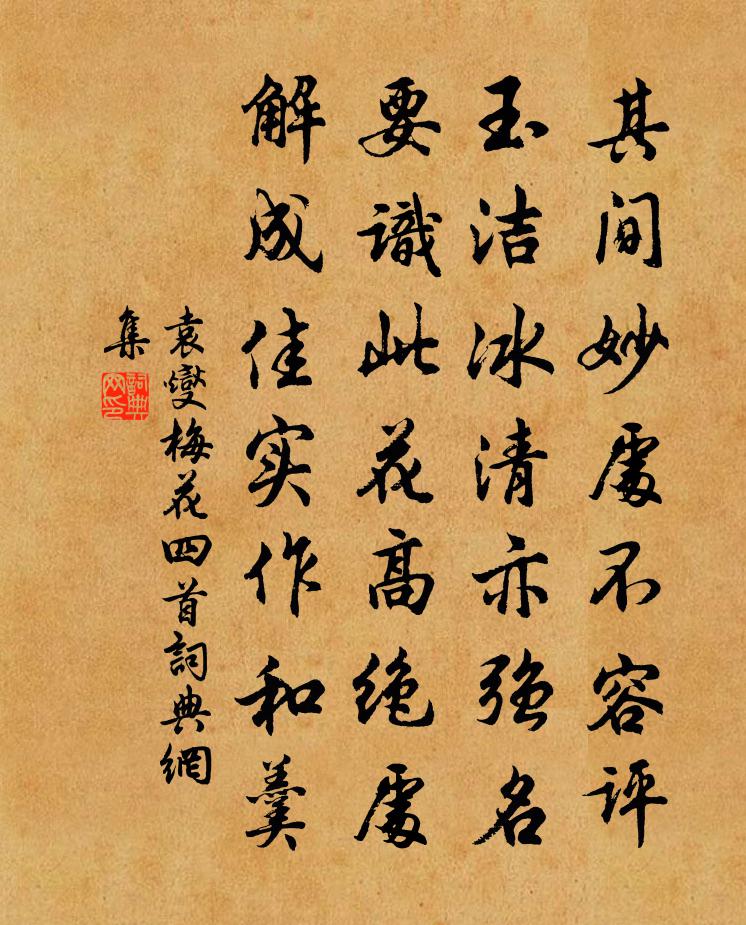 其间妙處不容评
玉洁冰清亦强名
要識此花高绝處
解成佳实作和羹
袁燮梅花四首詞典網
集
詞典网印